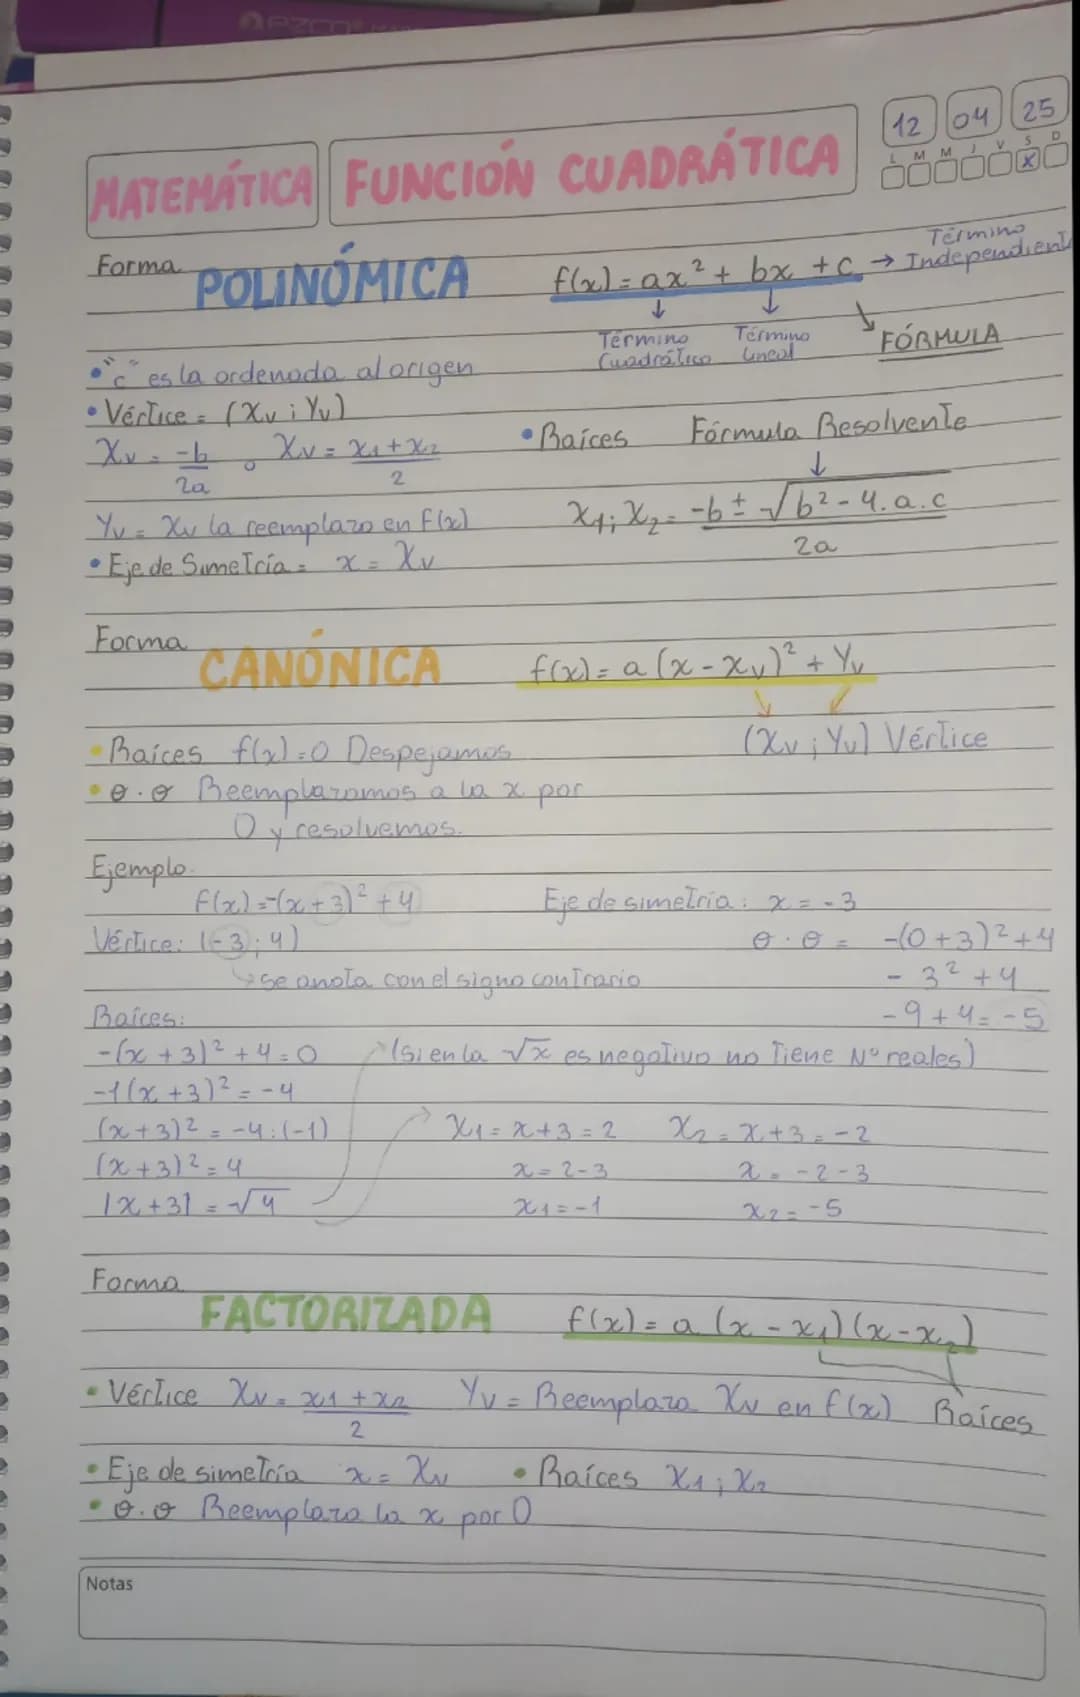 12 04 25
L M M J V S D
x
MATEMÁTICA FUNCIÓN CUADRÁTICA
Forma POLINÓMICA f(x) = ax² + bx + c → Término Independient
↓ Término Cuadrático ↓ Término lineal ↘ FÓRMULA
• "c" es la ordenada al origen
• Vértice = (Xv ; Yv)
Xv = -b/2a o Xv = x1 + x2/2
Yv = Xv la reemplazo en f(x)
• Eje de Simetría = x = Xv
• Raíces Fórmula Resolvente
↓
X1; X2 = -b ± √b² - 4.a.c / 2a
Forma CANÓNICA f(x) = a (x - xv)² + Yv
(Xv ; Yv) Vértice
• Raíces f(x) = 0 Despejamos
• o.o Reemplazamos a la x por
0 y resolvemos.
Ejemplo.
f(x) = -(x + 3)² + 4
Vértice: (-3 ; 4)
↳ se anota con el signo contrario
Eje de simetría : x = -3
o.o = -(0 + 3)² + 4
- 3² + 4
- 9 + 4 = -5
Raíces:
-(x + 3)² + 4 = 0 (Si en la √x es negativo no tiene Nº reales)
-1(x + 3)² = -4
(x + 3)² = -4 : (-1)
(x + 3)² = 4
|x + 3| = √4
X1 = x + 3 = 2 X2 = x + 3 = -2
x = 2 - 3 x = -2 - 3
x1 = -1 x2 = -5
Forma FACTORIZADA f(x) = a (x - x1) (x - x2)
Raíces
• Vértice Xv = x1 + x2/2 Yv = Reemplazo Xv en f(x)
• Eje de simetría x = Xv • Raíces X1 ; X2
• o.o Reemplazo la x por 0
Notas